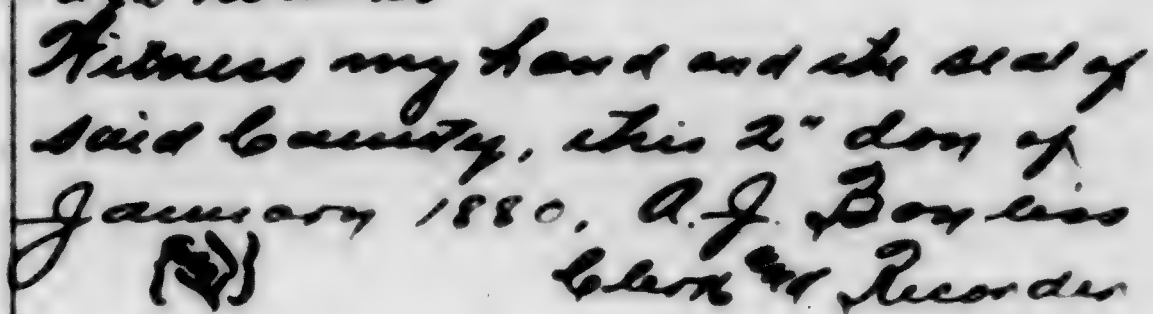 Witness my hand and the seal of
said County, this 2" day of
January 1880, A. J. Bayless
Clerk and Recorder